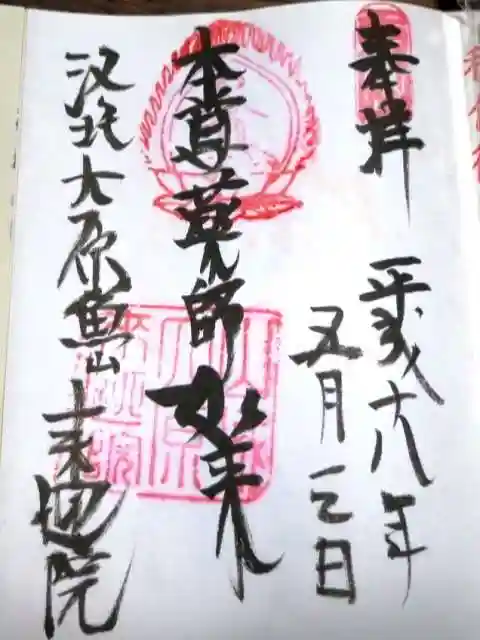 奉拝
平成廿八年
五月一二日
本尊薬師如来
洛北大原魚山 来迎院